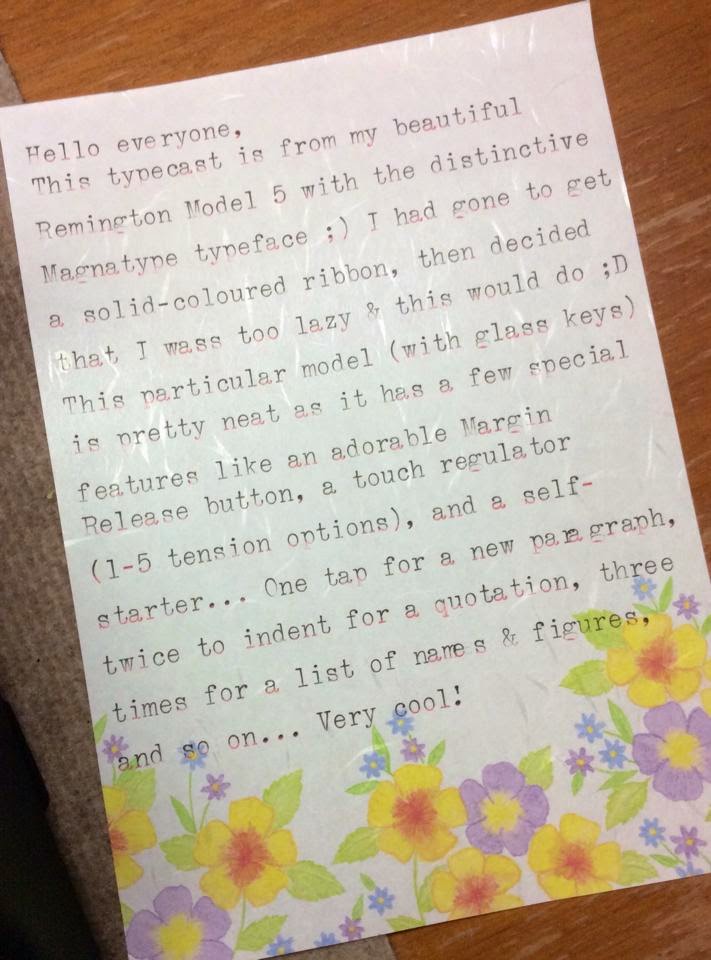 Hello everyone,
This typecast is from my beautiful
Remington Model 5 with the distinctive
Magnatype typeface ;) I had gone to get
a solid-coloured ribbon, then decided
that I wass too lazy & this would do ;D
This particular model (with glass keys)
is pretty neat as it has a few special
features like an adorable Margin
Release button, a touch regulator
(1-5 tension options), and a self-
starter... One tap for a new paragraph,
twice to indent for a quotation, three
times for a list of names & figures,
and so on... Very cool!